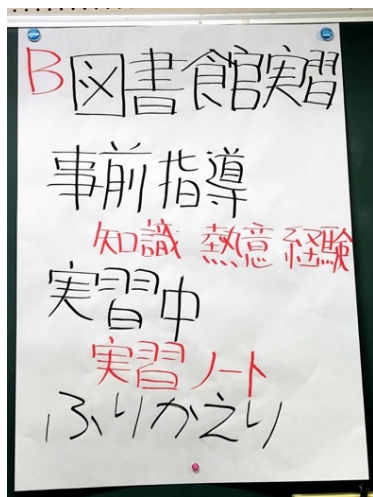 B図書館実習
事前指導
知識 熱意 経験
実習中
実習ノート
ふりかえり